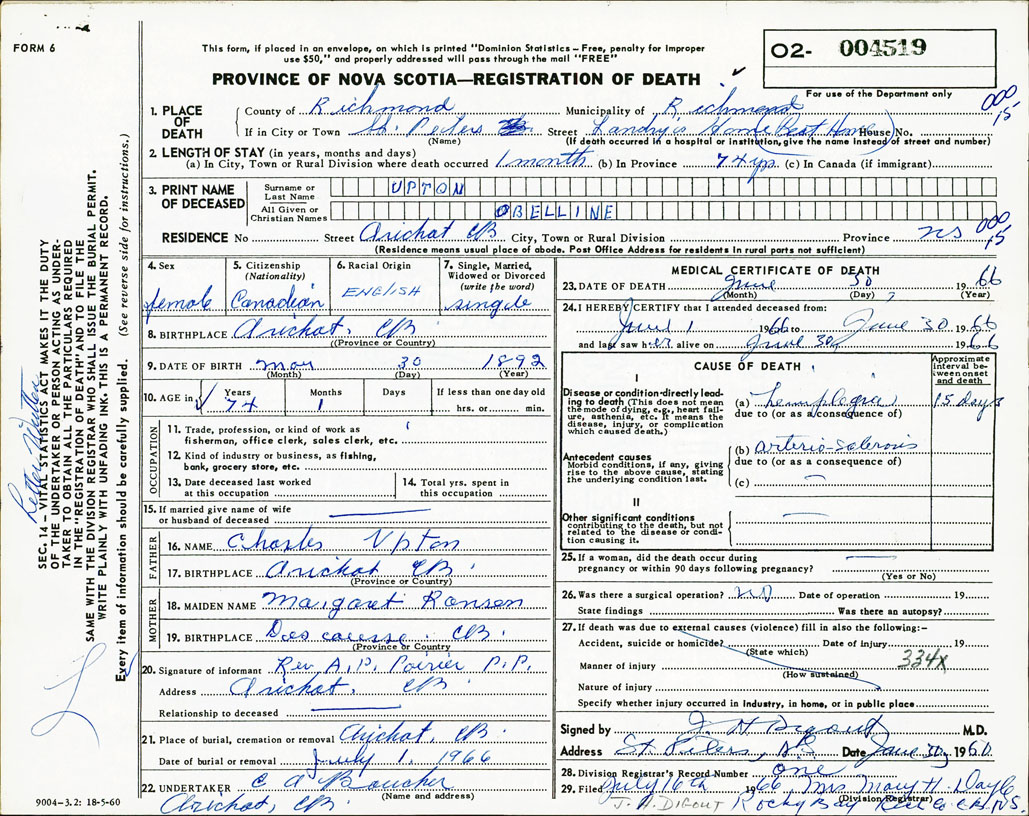 FORM 6
This form, if placed in an envelope, on which is printed "Dominion Statistics – Free, penalty for improper
use $50," and properly addressed will pass through the mail "FREE"
PROVINCE OF NOVA SCOTIA—REGISTRATION OF DEATH
O2- 004519
For use of the Department only
000
15
1. PLACE OF DEATH
County of Richmond Municipality of Richmond
If in City or Town St. Peters Street Landry's Home (Rest Home) House No.
(Name) (If death occurred in a hospital or institution, give the name instead of street and number)
2. LENGTH OF STAY (in years, months and days)
(a) In City, Town or Rural Division where death occurred 1 month (b) In Province 74 yrs (c) In Canada (if immigrant)
3. PRINT NAME OF DECEASED
Surname or Last Name UPTON
All Given or Christian Names OBELLINE
RESIDENCE No Street Arichat CB City, Town or Rural Division Province NS
000
15
(Residence means usual place of abode. Post Office Address for residents in rural parts not sufficient)
4. Sex female
5. Citizenship (Nationality) Canadian
6. Racial Origin ENGLISH
7. Single, Married, Widowed or Divorced (write the word) single
8. BIRTHPLACE Arichat, CB
(Province or Country)
9. DATE OF BIRTH May 30 1892
(Month) (Day) (Year)
10. AGE in Years 74 Months 1 Days If less than one day old hrs. or min.
OCCUPATION
11. Trade, profession, or kind of work as
fisherman, office clerk, sales clerk, etc.
12. Kind of industry or business, as fishing,
bank, grocery store, etc.
13. Date deceased last worked
at this occupation
14. Total yrs. spent in
this occupation
15. If married give name of wife
or husband of deceased
FATHER
16. NAME Charles Upton
17. BIRTHPLACE Arichat CB.
(Province or Country)
MOTHER
18. MAIDEN NAME Margaret Ronson
19. BIRTHPLACE CB.
(Province or Country)
20. Signature of informant Rev. A. P. Poirier P.P.
Address Arichat, CB
Relationship to deceased
21. Place of burial, cremation or removal Arichat, CB.
Date of burial or removal July 1, 1966
22. UNDERTAKER C A Boucher
(Name and address)
Arichat, CB.
9004–3.2: 18-5-60
MEDICAL CERTIFICATE OF DEATH
23. DATE OF DEATH June 30 1966
(Month) (Day) (Year)
24. I HEREBY CERTIFY that I attended deceased from:
June 1 1966 to June 30 1966
and last saw her alive on June 30 1966
CAUSE OF DEATH
Approximate interval between onset and death
I
Disease or condition directly leading to death (This does not mean
the mode of dying, e.g., heart failure, asthenia, etc. It means the
disease, injury, or complication
which caused death.)
(a) hemiplegia 15 days
due to (or as a consequence of)
Antecedent causes
Morbid conditions, if any, giving
rise to the above cause, stating
the underlying condition last.
(b) arterio-sclerosis
due to (or as a consequence of)
(c)
II
Other significant conditions
contributing to the death, but not
related to the disease or condition causing it.
25. If a woman, did the death occur during
pregnancy or within 90 days following pregnancy?
(Yes or No)
26. Was there a surgical operation? NO Date of operation 19
State findings Was there an autopsy?
27. If death was due to external causes (violence) fill in also the following:–
Accident, suicide or homicide? Date of injury 19
(State which)
334x
Manner of injury
(How sustained)
Nature of injury
Specify whether injury occurred in industry, in home, or in public place
Signed by J. H. Digout M.D.
Address St Peters, Date June 30 1960
28. Division Registrar's Record Number one
29. Filed July 16th 1966 Mrs Mary H. Doyle
(Division Registrar)
J. H. DIGOUT Rocky Bay Rich Co. C.B. N.S.
SEC. 14 – VITAL STATISTICS ACT MAKES IT THE DUTY
OF THE UNDERTAKER OR PERSON ACTING AS UNDERTAKER TO OBTAIN ALL THE PARTICULARS REQUIRED
IN THE "REGISTRATION OF DEATH" AND TO FILE THE
SAME WITH THE DIVISION REGISTRAR WHO SHALL ISSUE THE BURIAL PERMIT.
WRITE PLAINLY WITH UNFADING INK. THIS IS A PERMANENT RECORD.
Every item of information should be carefully supplied. (See reverse side for instructions.)
Letter Written